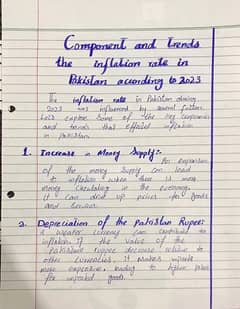 Component and Trends
the inflation rate in
Pakistan according to 2023
The inflation rate in Pakistan during
2023 was influenced by several factors
Let's explore some of the key components
and trends that effected inflation
in pakistan
1. Increase in Money Supply:-
An expansion
of the money supply can lead
to inflation when there is more
money circulating in the economy,
it can drive up prices for goods
and services.
2. Depreciation of the Pakistan Rupee:
A weaker currency can contribute to
inflation. If the value of the
Pakistani rupee decrease relative to
other currencies, it makes imports
more expensive, leading to higher prices
for imported goods.